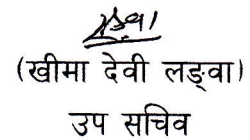 (खीमा देवी लङ्वा)
उप सचिव